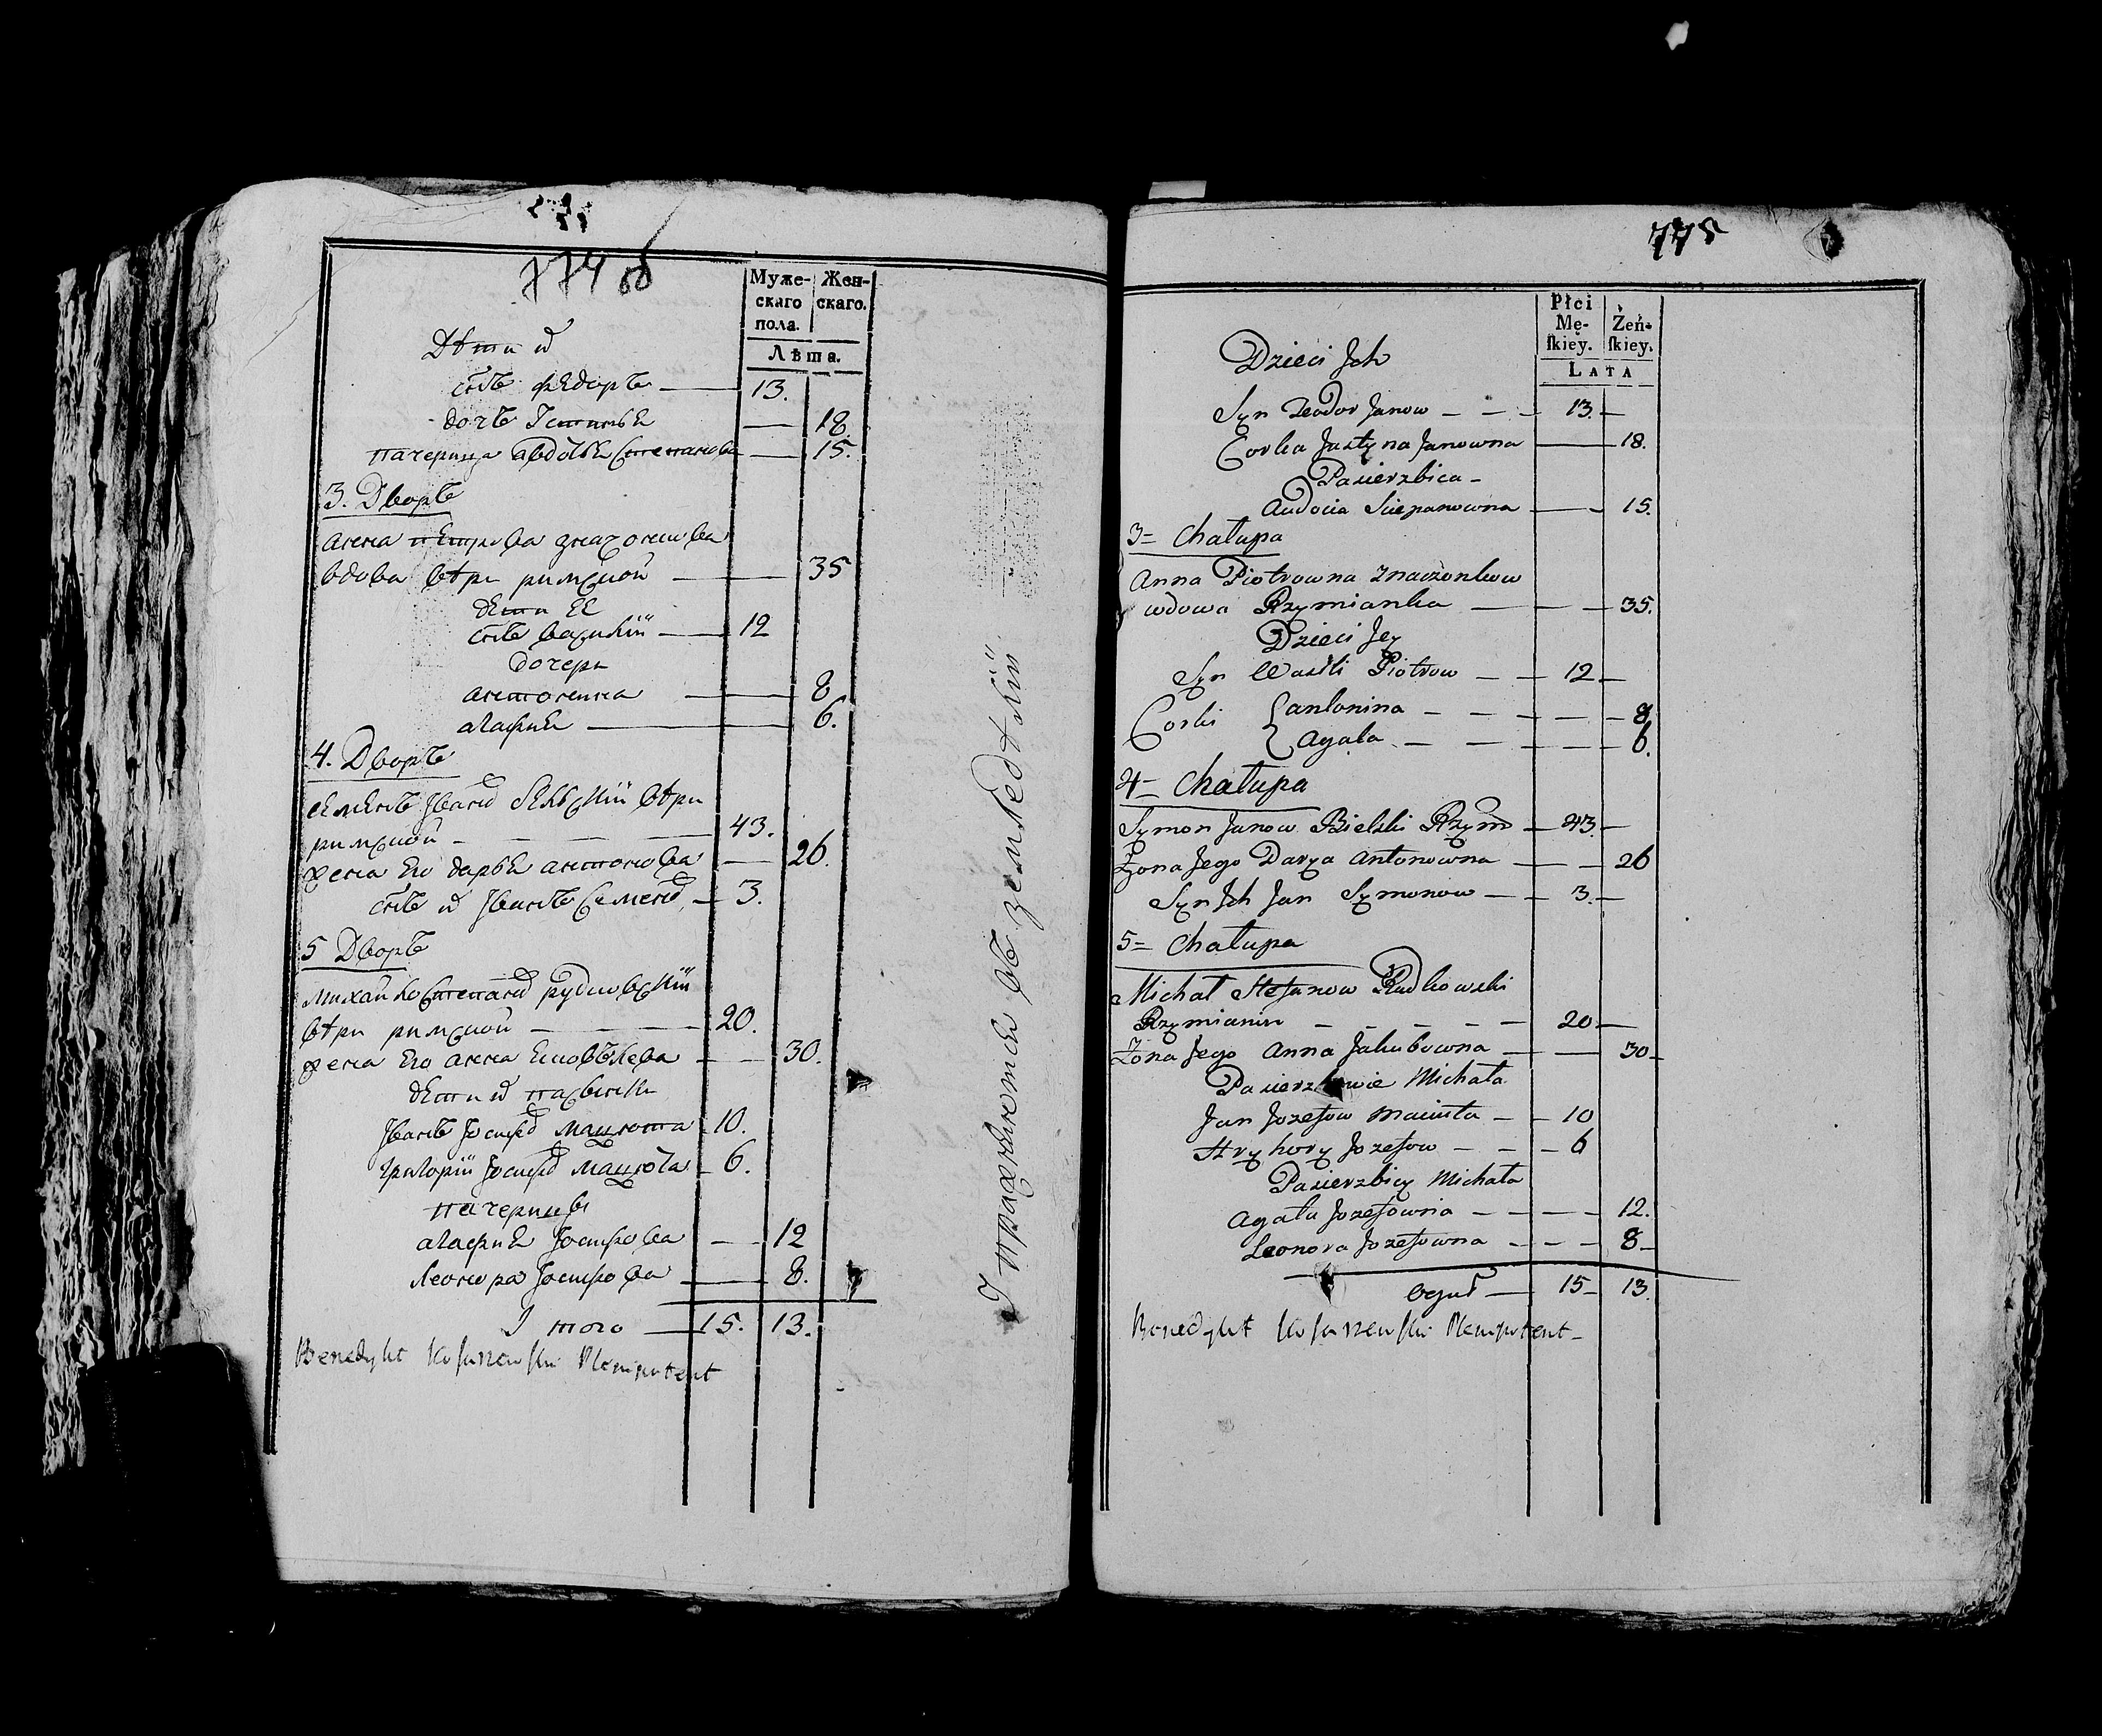 774 об
Муже-
скаго
пола.
Жен-
скаго.
Лѣта.
Дѣти и
снъ Федоръ — 13.
дочь Істинья — 18
падчерица авдотья Степанова — 15.
3. Дворъ
анна петрова
вдова вѣри римской — 35
дети ее
снъ василій — 12
дочери
антонина — 8
агафия — 6.
4. Дворъ
семенъ Іванов бельскій вѣри
римской — 43.
жена его дарья антонова — 26.
снъ и Іванъ Семенов — 3.
5 Дворъ
михайло Степанов рудковскій
вѣри римской — 20.
жена его анна — 30.
дети и пасынки
Іванъ Іосифов мацюта 10.
григорій Іосифов мацюта 6.
падчерицы
агафия Іосифова — 12
леонора Іосифова — 8.
І того — 15. 13.
Benedykt Plenipotent
въ
775
Płci
Mę-
skiey.
Żeń-
skiey.
LATA
Dzieci Jch
Syn Teodor Janow — 13. —
Corka Justyna Janowna — 18.
Pasierzbica -
Audocia Sciepanowna — 15.
3= Chałupa
Anna Piotrowna Znaczonkow
wdowa Rzymianka — 35.
Dzieci Jey
Syn Wasili Piotrow — 12 —
Corki { antonina — 8
Agata — 6.
4= Chałupa
Symon Janow Bielski Rzym — 43. —
Żona Jego Darya Antonowna — 26
Syn Jch Jan Symonow — 3. —
5= Chałupa
Michał Stefanow Rudkowski
Rzymianin — 20 —
Żona Jego Anna Jakubowna — 30 —
Pasierzbowie Michała
Jan Jozefow Maciuta — 10
Hryhory Jozefow — 6
Pasierzbicy Michała
Agata Jozefowna — 12.
Leonora Jozefowna — 8 —
oguł — 15 — 13.
Benedykt Plenipotent —